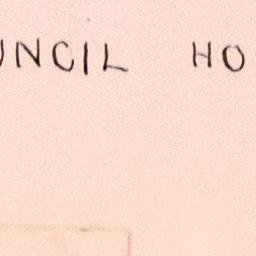 UNCIL HO